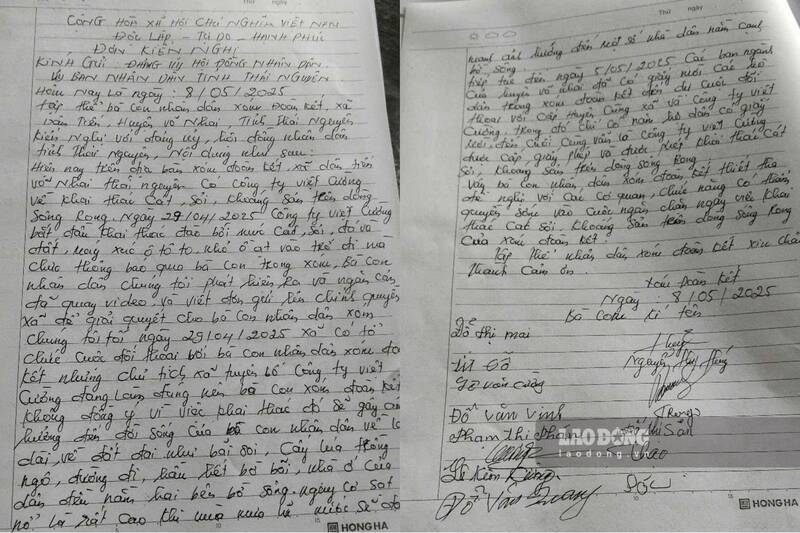 CỘNG HÒA XÃ HỘI CHỦ NGHĨA VIỆT NAM
ĐỘC LẬP - TỰ DO - HẠNH PHÚC
ĐƠN KIẾN NGHỊ
KÍNH GỬI: ĐẢNG ỦY HỘI ĐỒNG NHÂN DÂN
ỦY BAN NHÂN DÂN TỈNH THÁI NGUYÊN
Hôm nay là ngày: 8/05/2025
tập thể bà con nhân dân xóm Đoàn kết, xã
Dân Tiến, Huyện võ Nhai, Tỉnh Thái Nguyên
kiến Nghị với đảng ủy, hội đồng nhân dân
tỉnh Thái Nguyên, Nội dung như sau:
Hiện nay trên địa bàn xóm đoàn kết, xã dân tiến
võ Nhai thái nguyên có công ty việt cường
về khai thác cát, sỏi, khoáng sản trên dòng
sông Rong. Ngày 29/04/2025 công ty việt Cường
bắt đầu khai thác đào bới múc cát, sỏi, đá và
đất, máy xúc ô tô to nhỏ ồ ạt vào trở đi mà
chưa thông báo qua bà con trong xóm. Bà con
nhân dân chúng tôi phát hiện ra và ngăn cản
đã quay video và viết đơn gửi lên chính quyền
xã để giải quyết cho bà con nhân dân xóm
chúng tôi tối ngày 29/04/2025 xã có tổ
chức cuộc đối thoại với bà con nhân dân xóm đoàn
kết nhưng chủ tịch xã tuyên bố công ty việt
Cường đang làm đúng nên bà con xóm đoàn kết
không đồng ý vì việc khai thác đó sẽ gây ảnh
hưởng đến đời sống của bà con nhân dân về lâu
dài, về đất đai như bãi soi, cây lúa trồng
ngô, đường đi, hầu hết bờ bãi, nhà ở của
dân đều nằm hai bên bờ sông. nguy cơ sạt
nở là rất cao khi mùa mưa lũ nước sẽ
Thứ ngày
mạnh ảnh hưởng đến một số nhà dân nằm cạnh
bờ sông.
tiếp tục đến ngày 5/05/2025 các ban ngành
của huyện võ nhai đã có giấy mời các hộ
dân trong xóm đoàn kết đến dự cuộc đối
thoại với cấp Huyện cùng xã và công ty việt
Cường. trong đó chỉ có năm hộ dân có giấy
mời. đến cuối cùng vẫn là công ty việt cường
được cấp, giấy phép và được phép khai thác cát
sỏi, khoáng sản trên dòng sông Rong.
vậy bà con nhân, dân xóm đoàn kết thiết tha
đề nghị với các cơ quan, chức năng có thẩm
quyền sớm vào cuộc ngăn chặn ngay việc khai
thác cát sỏi. khoáng sản trên dòng sông Rong
của xóm đoàn kết.
Tập thể nhân dân xóm đoàn kết xin chân
thành Cảm ơn.
xóm Đoàn kết
Ngày: 8/05/2025
Bà con kí tên
Đỗ thị mai
Nguyễn Thị
Đỗ Văn Vinh
Phạm Thị
LAO ĐỘNG
laodong.vn
Lê Kim
Đỗ Văn Quang
HONG HA
HONG HA